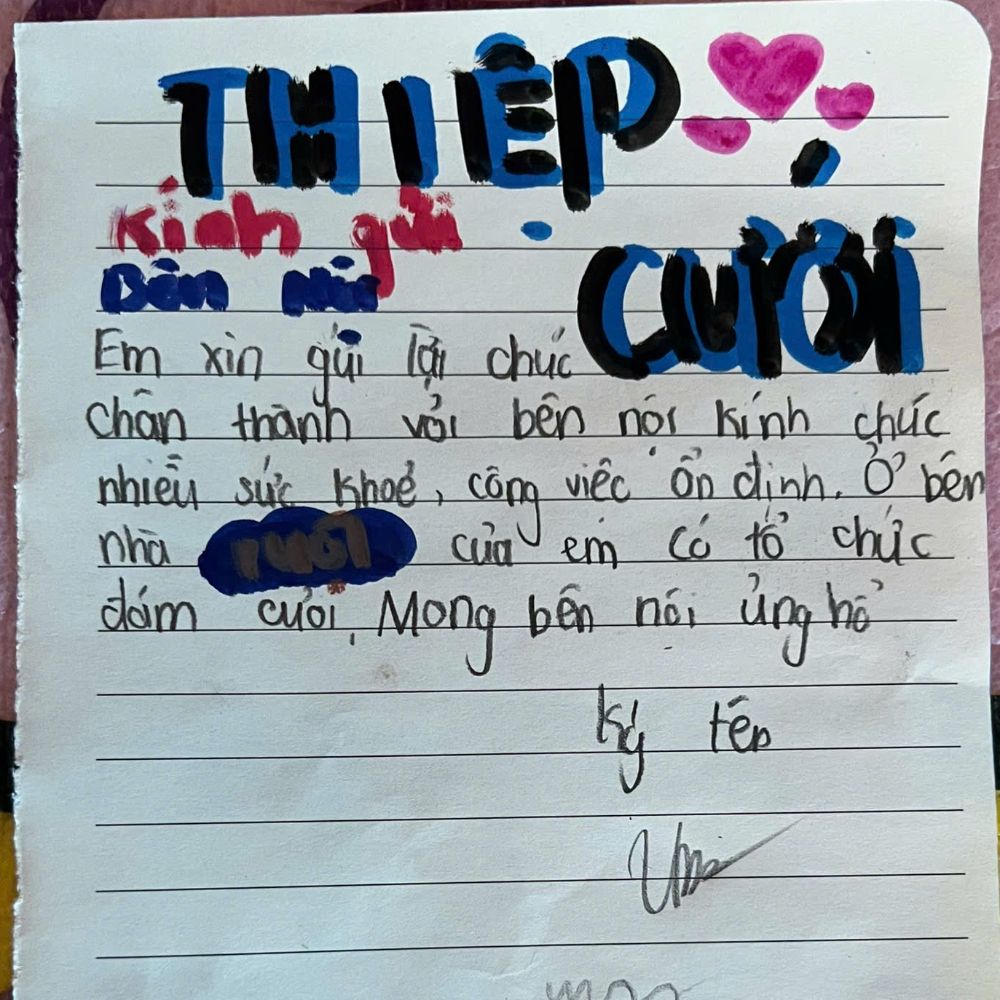 THIỆP
CƯỚI
Kính gửi
Bên
Em xin gửi lời chúc
chân thành với bên nội kính chúc
nhiều sức khoẻ, công việc ổn định. Ở bên
nhà của em có tổ chức
đám cưới. Mong bên nội ủng hộ
ký tên